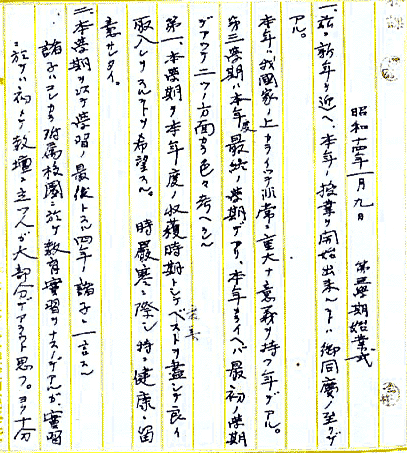 昭和十四年一月九日　第三学期始業式
一、茲ニ新年ヲ迎ヘ、本年ノ授業ヲ開始出来ルコトハ御同慶ノ至リデ
アル。
本年ハ我國家ノ上カラ云ッテ非常ニ重大ナ意義ヲ持ツ年デアル。
第三學期ハ本年度最終ノ學期デアリ、本年カライヘバ最初ノ學期
デアッテ二ツノ方面カラ色々考ヘラレル
第一、本學期ヲ本年度ノ收穫時期トシテベストヲ盡シテ良イ
收入レヲスルコトヲ希望スル。時嚴寒ニ際シ特ニ健康ニ留
意サレタイ。
二、本學期ヲ以テ學習ノ最後トスル四年ノ諸子ニ一言スル
諸子ハコレカラ附属校園ニ於テ教育實習ヲナスノデアルガ、實習
ニ於テハ初メテ教壇ニ立ツ人ガ大部分デアラウト思フ。ヨク十分